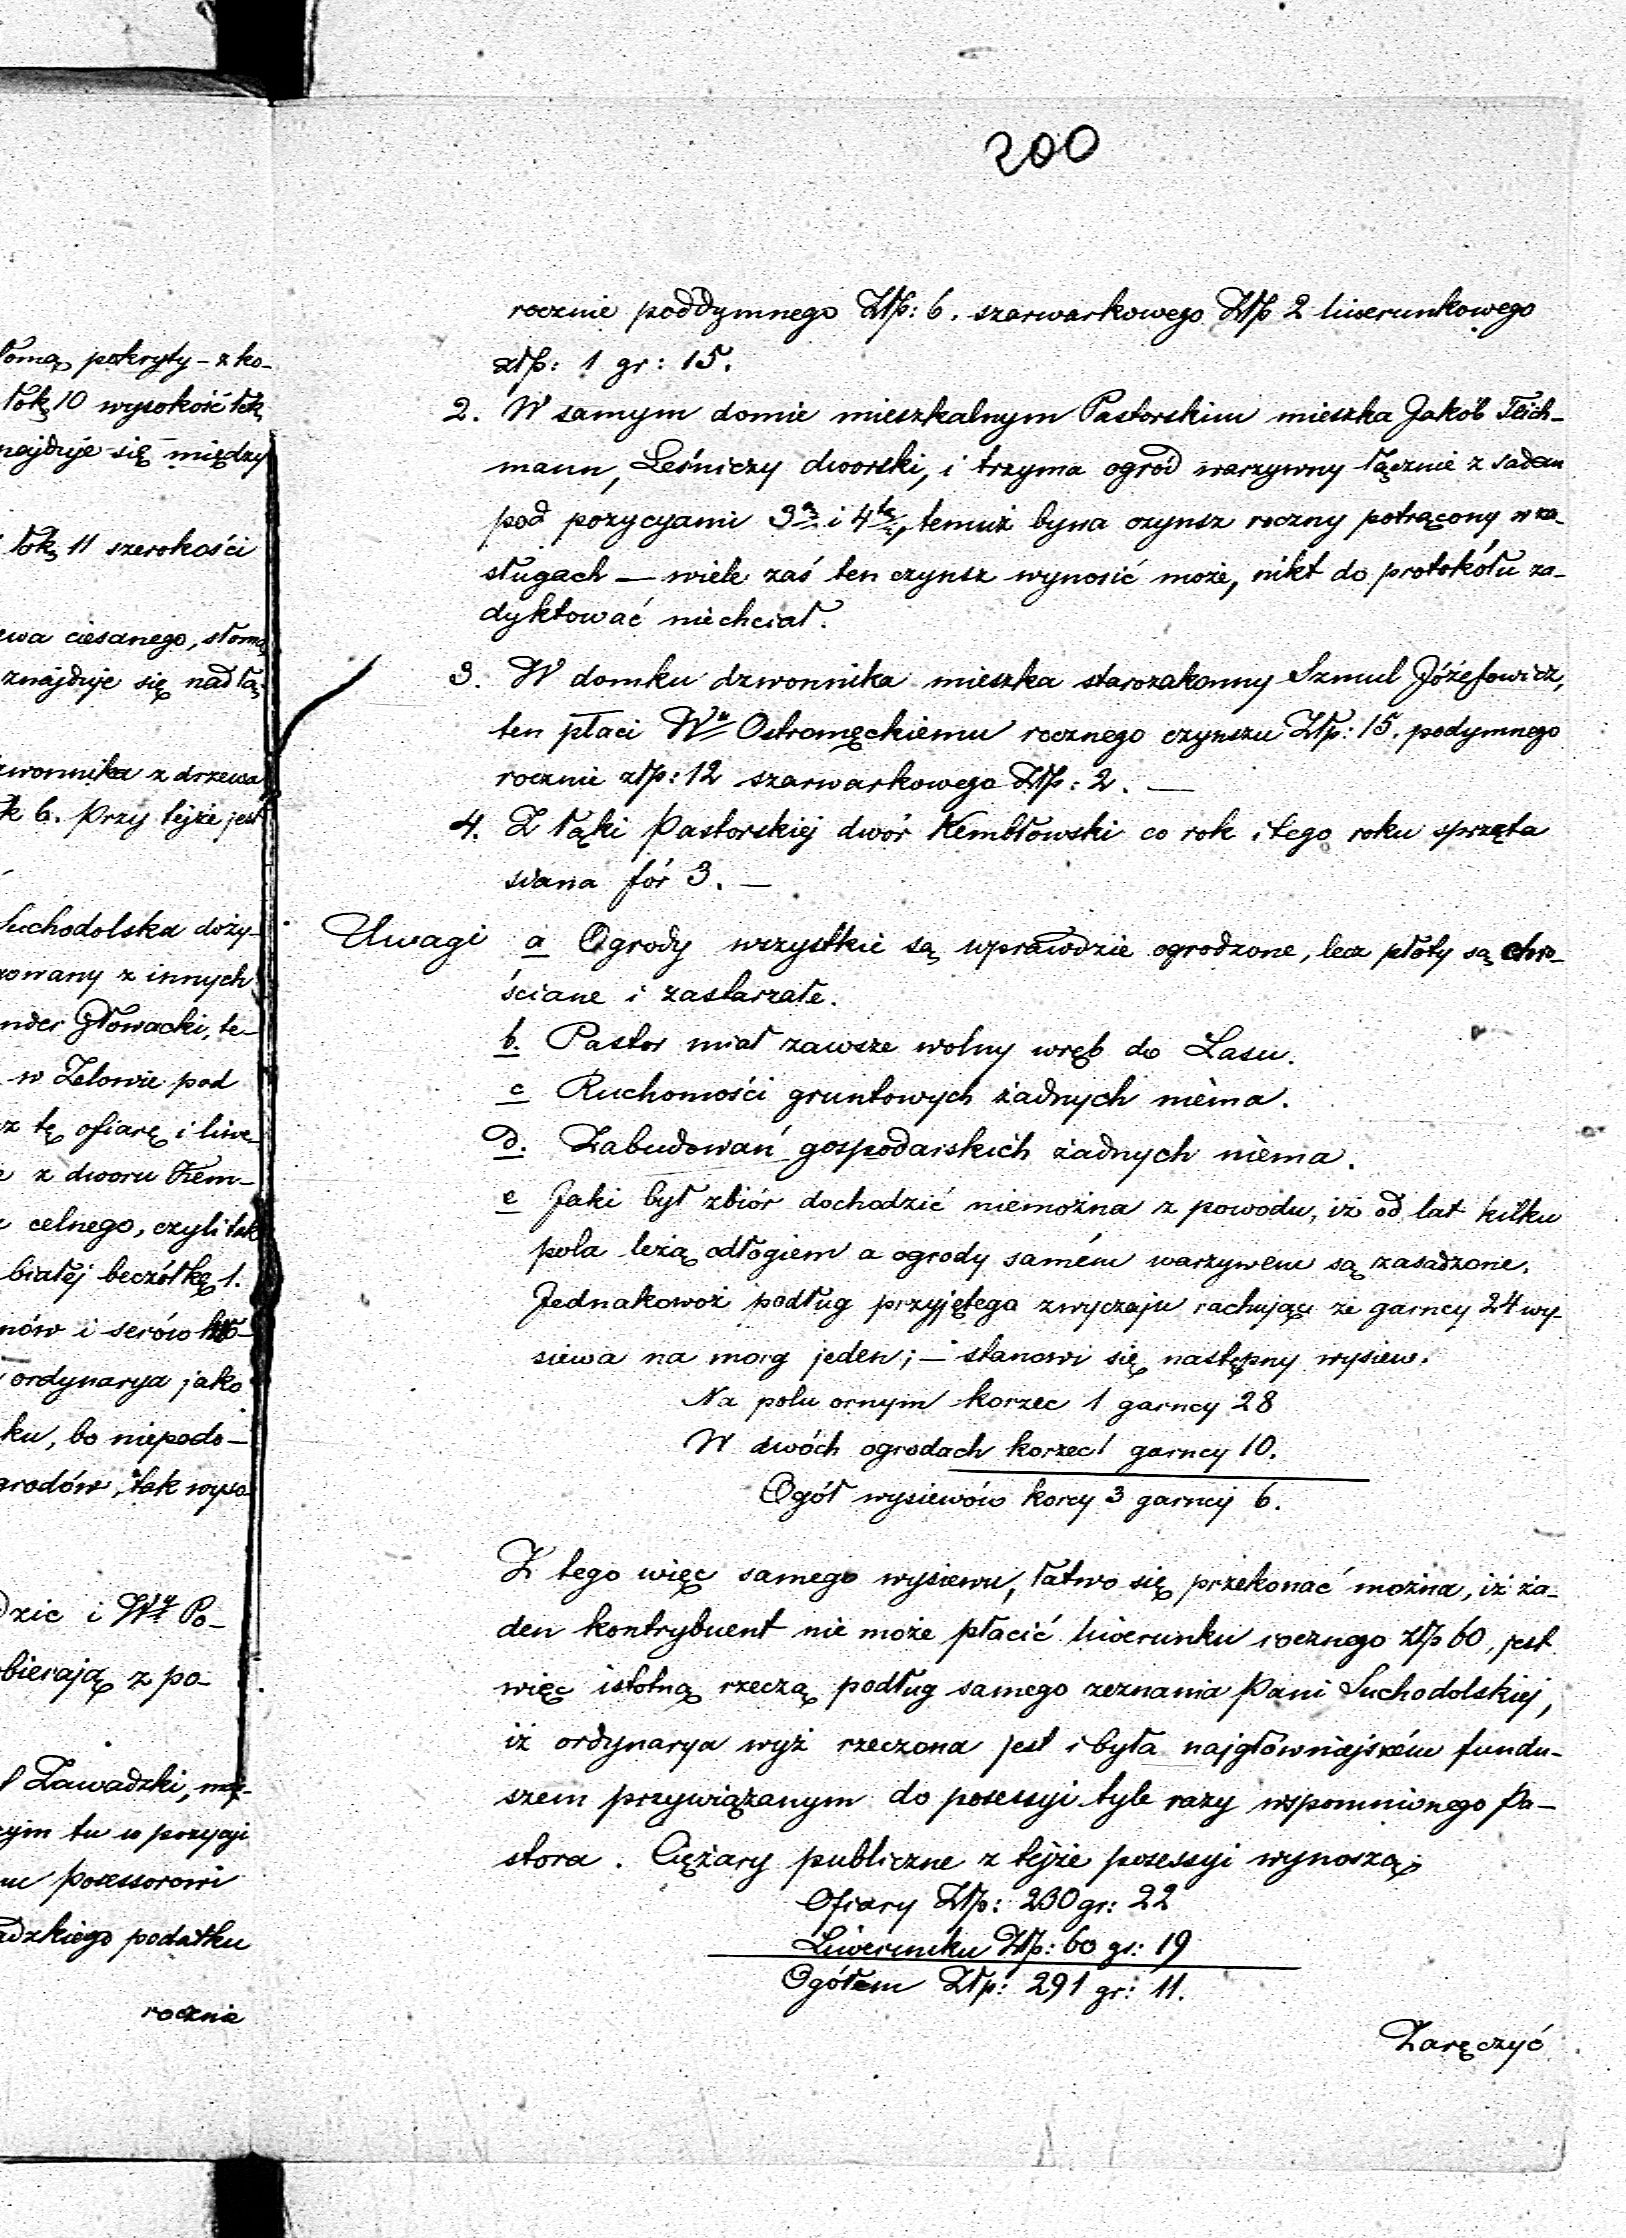 200
łomą pokryty - z ko-
łok 10 wysokość łok
najduje się między
łok 11 szerokości
ewa ciesanego, słomą
znajduje się nad łą-
zwonnika z drzewa
k 6. Przy tejże jest
Suchodolska doży-
zowany z innych
nder Głowacki, te-
w Zelowie pod
z tę ofiarę i liwe-
z dworu Kem-
celnego, czyli tak
białej beczółkę 1.
nów i serów
ordynarya jako
ku, bo niepodo-
grodów, tak wyso
dzic i Wy Po-
bierają z po-
Zawadzki, maj-
cym tu w pozycyi
m posessorowi
adzkiego podatku
rocznie
rocznie poddymnego Złp: 6. szarwarkowego Złp 2 liwerunkowego
złp: 1 gr: 15.
2. W samym domie mieszkalnym Pastorskim mieszka Jakób Teich-
mann, Leśniczy dworski, i trzyma ogród warzywny łącznie z sadem
pod pozycyami 3a i 4ta, temuż bywa czynsz roczny potrącony w za-
sługach — wiele zaś ten czynsz wynosić może, nikt do protokółu za-
dyktować niechciał.
3. W domku dzwonnika mieszka starozakonny Szmul Józefowicz,
ten płaci Wu Ostromęckiemu rocznego czynszu Złp: 15. podymnego
rocznie złp: 12 szarwarkowego Złp: 2. —
4. Z łąki Pastorskiej dwór Kembłowski co rok i tego roku sprzęta
siana fór 3. —
Uwagi a Ogrody wszystkie są wprawdzie ogrodzone, lecz płoty są chro-
ściane i zastarzałe.
b. Pastor miał zawsze wolny wręb do Lasu.
c Ruchomości gruntowych żadnych niéma.
d. Zabudowań gospodarskich żadnych niéma.
e Jaki był zbiór dochodzić niemożna z powodu, iż od lat kilku
pola leżą odłogiem a ogrody samém warzywem są zasadzone.
Jednakowoż podług przyjętego zwyczaju rachując ze garncy 24 wy-
siewa na morg jeden; — stanowi się następny wysiew.
Na polu ornym korzec 1 garncy 28
W dwóch ogrodach korzec 1 garncy 10.
Ogół wysiewów korcy 3 garncy 6.
Z tego więc samego wysiewu, łatwo się przekonać można, iż ża-
den kontrybuent nie może płacić liwerunku rocznego złp 60, jest
więc istotną rzeczą podług samego zeznania Pani Suchodolskiej,
iż ordynarya wyż rzeczona jest i była najgłówniejszém fundu-
szem przywiązanym do posessyi tyle razy wspomnionego Pa-
stora. Ciężary publiczne z tejże posessyi wynoszą
Ofiary Złp: 230 gr: 22
Liwerunku Złp: 60 gr: 19
Ogółem Złp: 291 gr: 11.
Zaręczyć